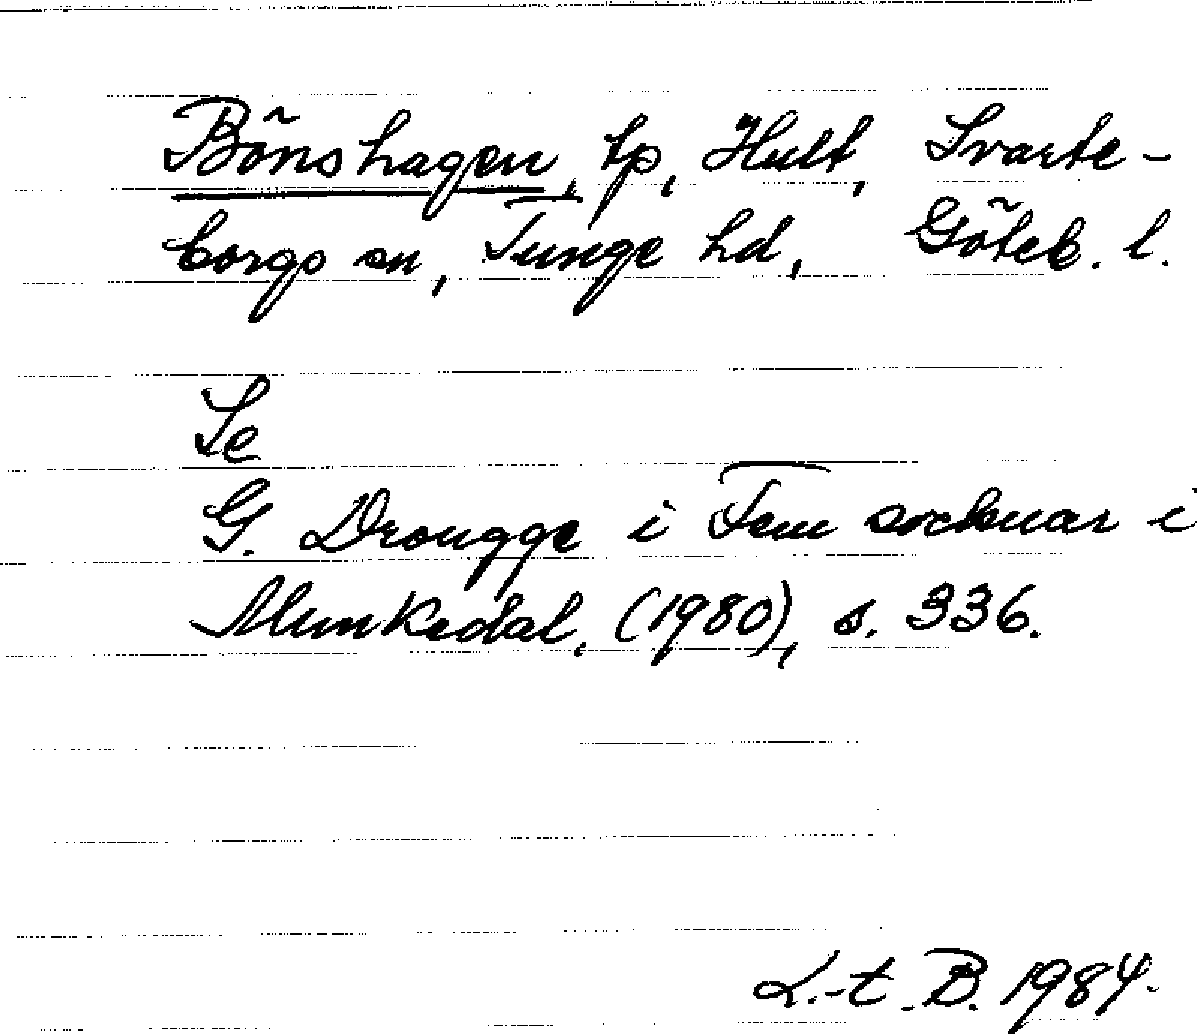 Bönshagen, tp, Hult, Svarte-
borgs sn, Tunge hd, Göteb. l.
Se
G. Drougge i Fem socknar i
Munkedal, (1980), s. 336.
L.-t. B. 1984.